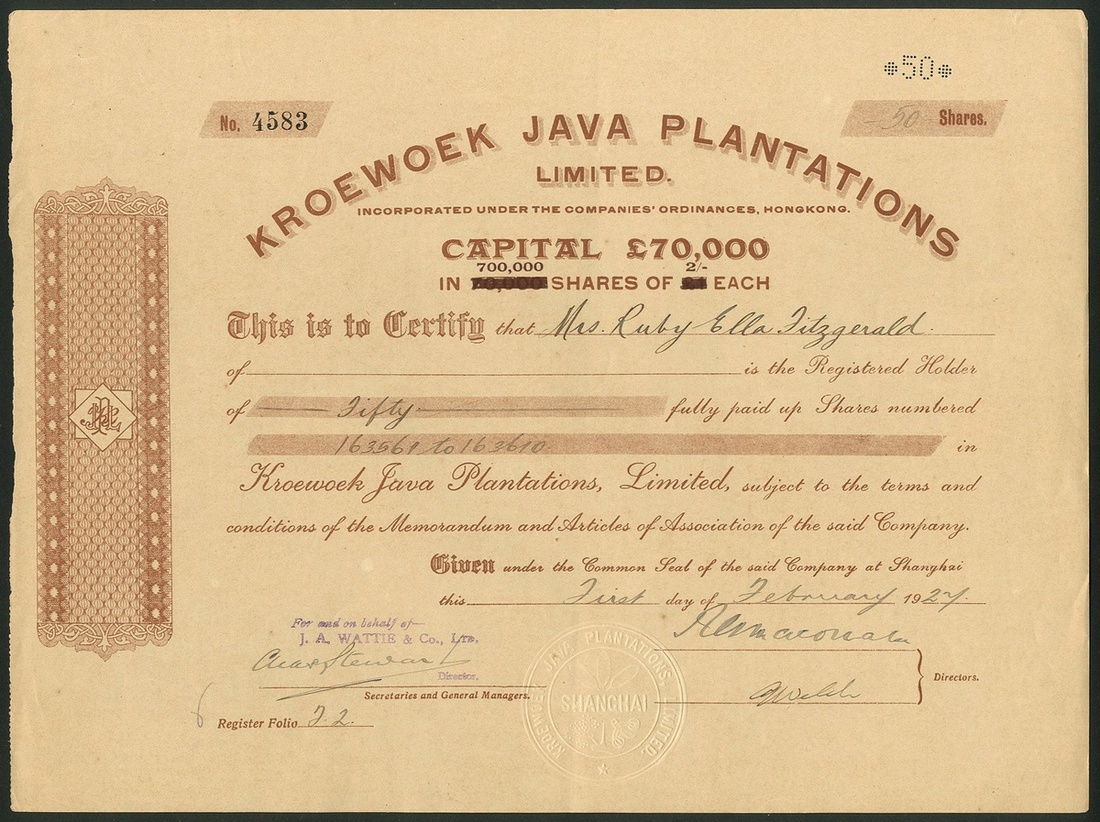 *50*
No. 4583
50 Shares.
KROEWOEK JAVA PLANTATIONS
LIMITED.
INCORPORATED UNDER THE COMPANIES' ORDINANCES, HONGKONG.
CAPITAL £70,000
700,000 2/-
IN 70,000 SHARES OF £1 EACH
This is to Certify that Mrs. Ruby Ella Fitzgerald
of is the Registered Holder
of Fifty fully paid up Shares numbered
163561 to 163610 in
Kroewoek Java Plantations, Limited, subject to the terms and
conditions of the Memorandum and Articles of Association of the said Company.
Given under the Common Seal of the said Company at Shanghai
this First day of February 1927.
For and on behalf of
J. A. WATTIE & Co., LTD.
Chas Stewart
Director.
Secretaries and General Managers.
Welch
Directors.
Register Folio F. 2.
KROEWOEK JAVA PLANTATIONS, LIMITED.
SHANGHAI